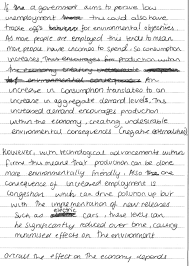 If the a government aims to pursue low
unemployment this could also have
trade offs between for environmental objectives.
As more people are employed this tends to mean
that people have income to spend, so consumption
increases. Thus encourages for production within
the economy creating undesirable
environmental consequences. An
increase in consumption translates to an
increase in aggregate demand levels. This
increased demand encourages production
within the economy, creating undesirable
environmental consequences (negative externalities)
However, with technological advancements within
firms this means that production can be done
more environmentally friendly. Also one
consequence of increased employment is
congestion which can drive pollution up but
with the implementation of new releases
such as electric cars, these levels can
be significantly reduced over time, causing
minimised effects on the environment
Overall the effect on the economy depends